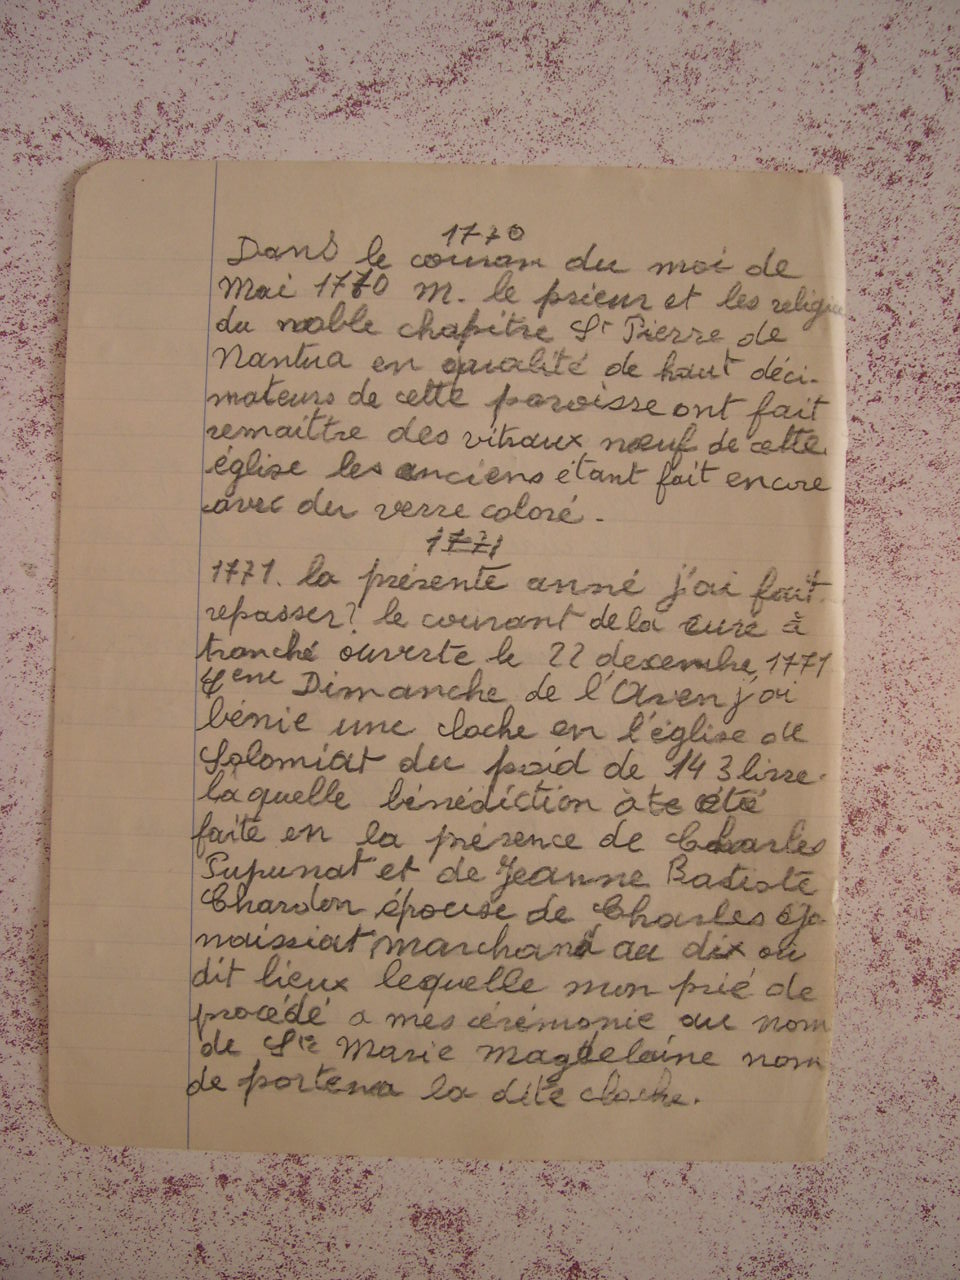 1770
Dans le couran du moi de
Mai 1770 M. le prieur et les religieu
du noble chapitre St Pierre de
Nantua en qualité de haut déci-
mateurs de cette paroisse ont fait
remaittre des vitraux nœuf de cette
église les anciens étant fait encore
avec du verre coloré.
1771
1771. la présente anné j'ai fait
repasser? le courant de la cure à
tranché ouverte le 22 decembre 1771
4eme Dimanche de l'Aven j'ai
bénie une cloche en l'église de
Solomiat du poid de 143 livre.
laquelle bénédiction à été
faite en la présence de Charles
Pupunat et de Jeanne Batiste
Chardon épouse de Charles Ja
naissiat marchand au dix ou
dit lieux lequelle mon prié de
procédé a mes cérémonie au nom
de Ste Marie Magdelaine nom
de portera la dite cloche.